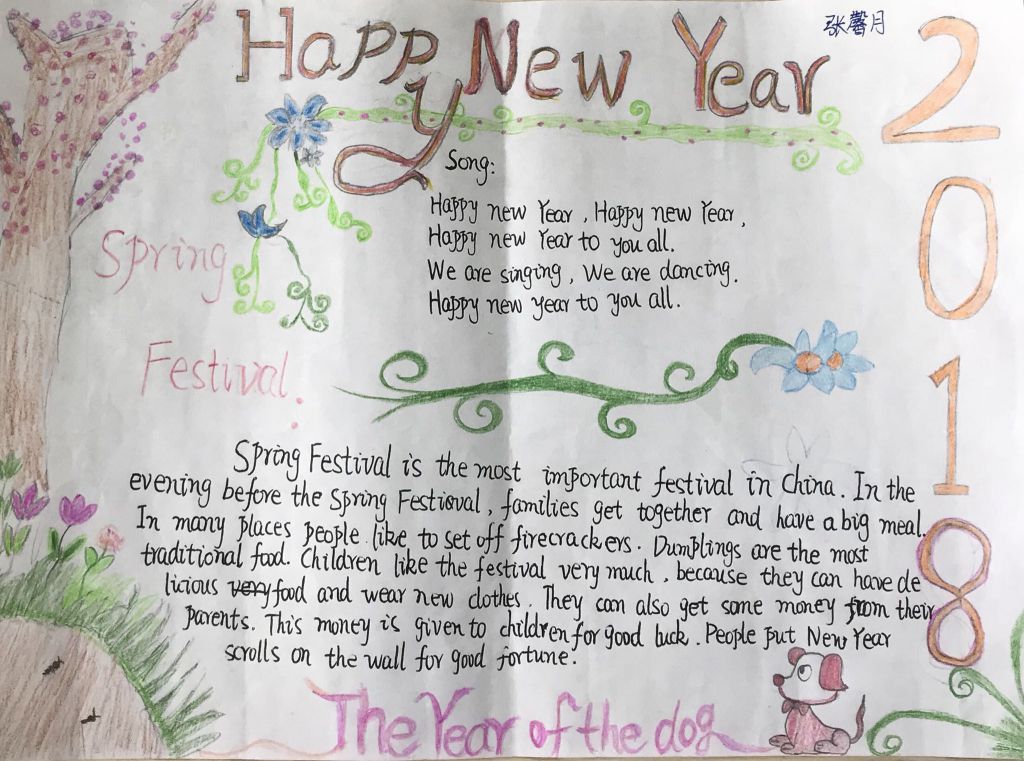 Happy New Year
张馨月
2018
Song:
Happy new Year , Happy new Year ,
Happy new Year to you all.
We are singing , We are dancing.
Happy new year to you all.
Spring
Festival.
Spring Festival is the most important festival in China. In the
evening before the Spring Festioval, families get together and have a big meal.
In many places people like to set off firecrackers. Dumplings are the most
traditional food. Children like the festival very much , because they can have de
licious very food and wear new clothes. They can also get some money from their
parents. This money is given to children for good luck. People put New Year
scrolls on the wall for good fortune.
The Year of the dog